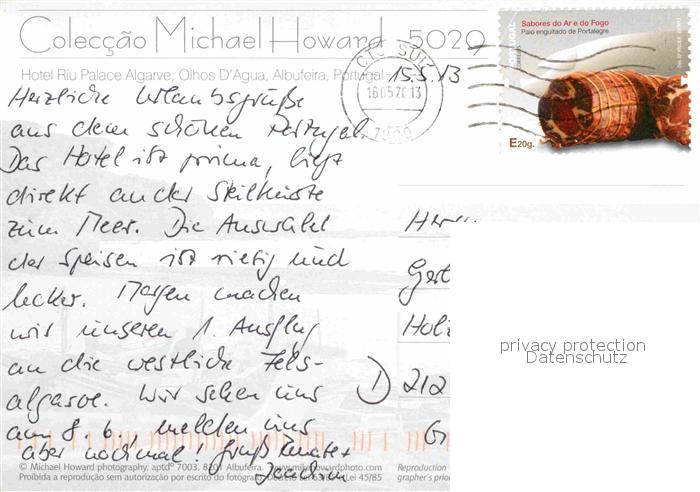 Colecção Michael Howard 5029
Hotel Riu Palace Algarve, Olhos D'Agua, Albufeira, Portugal
15.5.13
CTC SUL
16 05 20 13
PORTUGAL
Sabores do Ar e do Fogo
Paio enguitado de Portalegre
E20g.
Herzliche Urlaubsgrüße
aus dem schönen Portugal.
Das Hotel ist prima, liegt
direkt an der Steilküste
zum Meer. Die Auswahl
der Speisen ist riesig und
lecker. Morgen machen
wir unseren 1. Ausflug
an die westliche Fels-
algarve. Wir sehen uns
am 8.6., melden uns
aber nochmal! Gruß Renate +
Joachim
D 212
privacy protection
Datenschutz
© Michael Howard photography. aptdº 7003, 8201 Albufeira. www.mikehowardphoto.com
Proibida a reprodução sem autorização por escrito do fotógrafo. Lei 45/85
Reproduction
grapher's prior